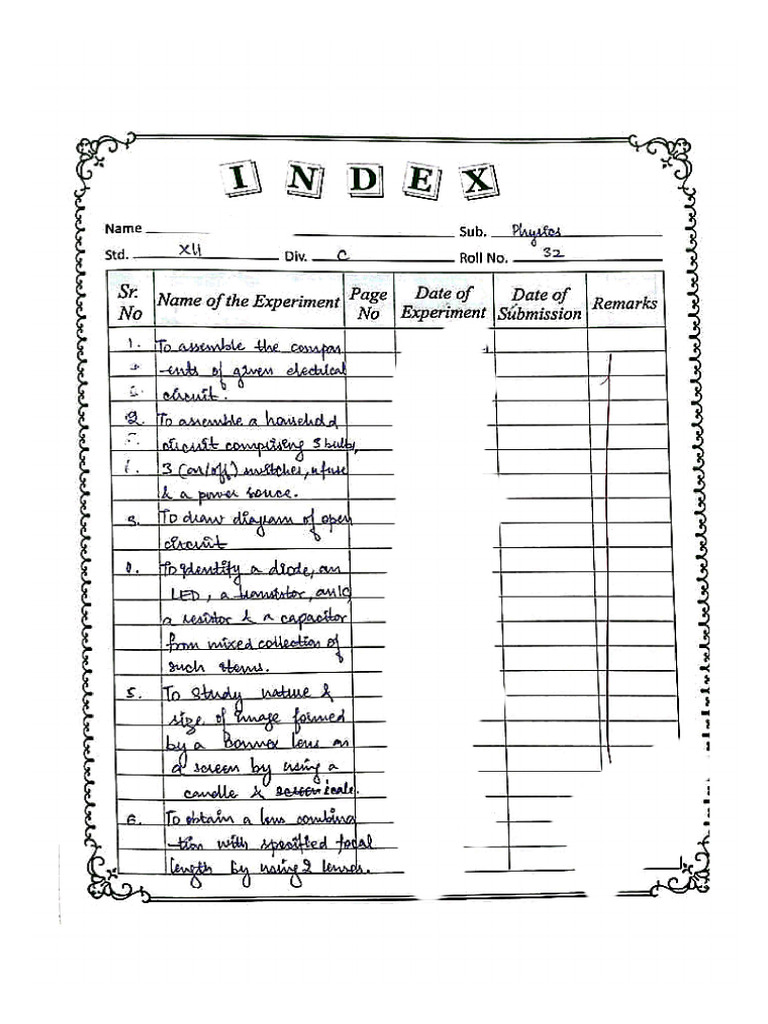 INDEX
Name Sub. Physics
Std. XII Div. C Roll No. 32
Sr. No Name of the Experiment Page No Date of Experiment Date of Submission Remarks
1. To assemble the compon
-ents of given electrical
circuit.
2. To assemble a household
circuit comprising 3 bulbs,
3 (on/off) switches, a fuse
& a power source.
3. To draw diagram of open
circuit
To identify a diode, an
LED, a transistor, an IC,
a resistor & a capacitor
from mixed collection of
such items.
5. To study nature &
size of image formed
by a lens on
a screen by using a
candle & screen
6. To obtain a lens combina
-tion with specified focal
length by using 2 lenses.